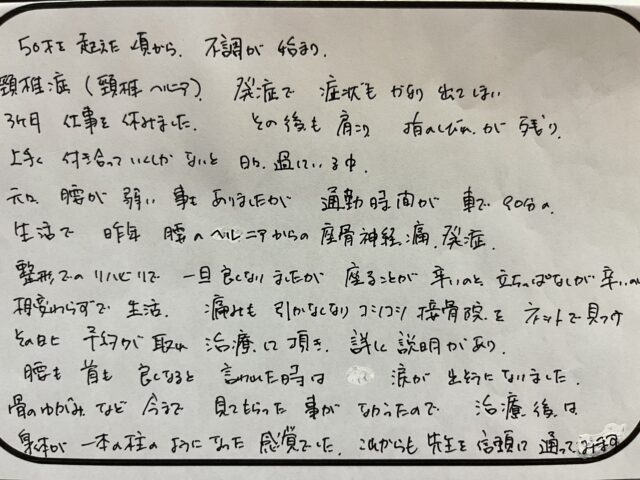 50才を起えた頃から、不調が始まり、
頸椎症(頸椎ヘルニア)、発症で症状もかなり出てしまい
3ヶ月仕事を休みました。その後も肩こり指のしびれが残り、
上手く付き合っていくしかないと日々過している中、
元々腰が弱い事もありましたが通勤時間が車で90分の
生活で昨年腰のヘルニアからの座骨神経痛、発症。
整形でのリハビリで一旦良くなりましたが座ることが辛いのと、立ちっぱなしが辛いの
相変わらずで生活、痛みも引かなくなりコツコツ接骨院をネットで見つけ
その日に予約が取れ治療して頂き、詳しく説明があり、
腰も首も良くなると言われた時は涙が出そうになりました。
骨のゆがみなど今まで見てもらった事がなかったので治療後は
身体が一本の柱のようになった感覚でした。これからも先生を信頼して通ってみます